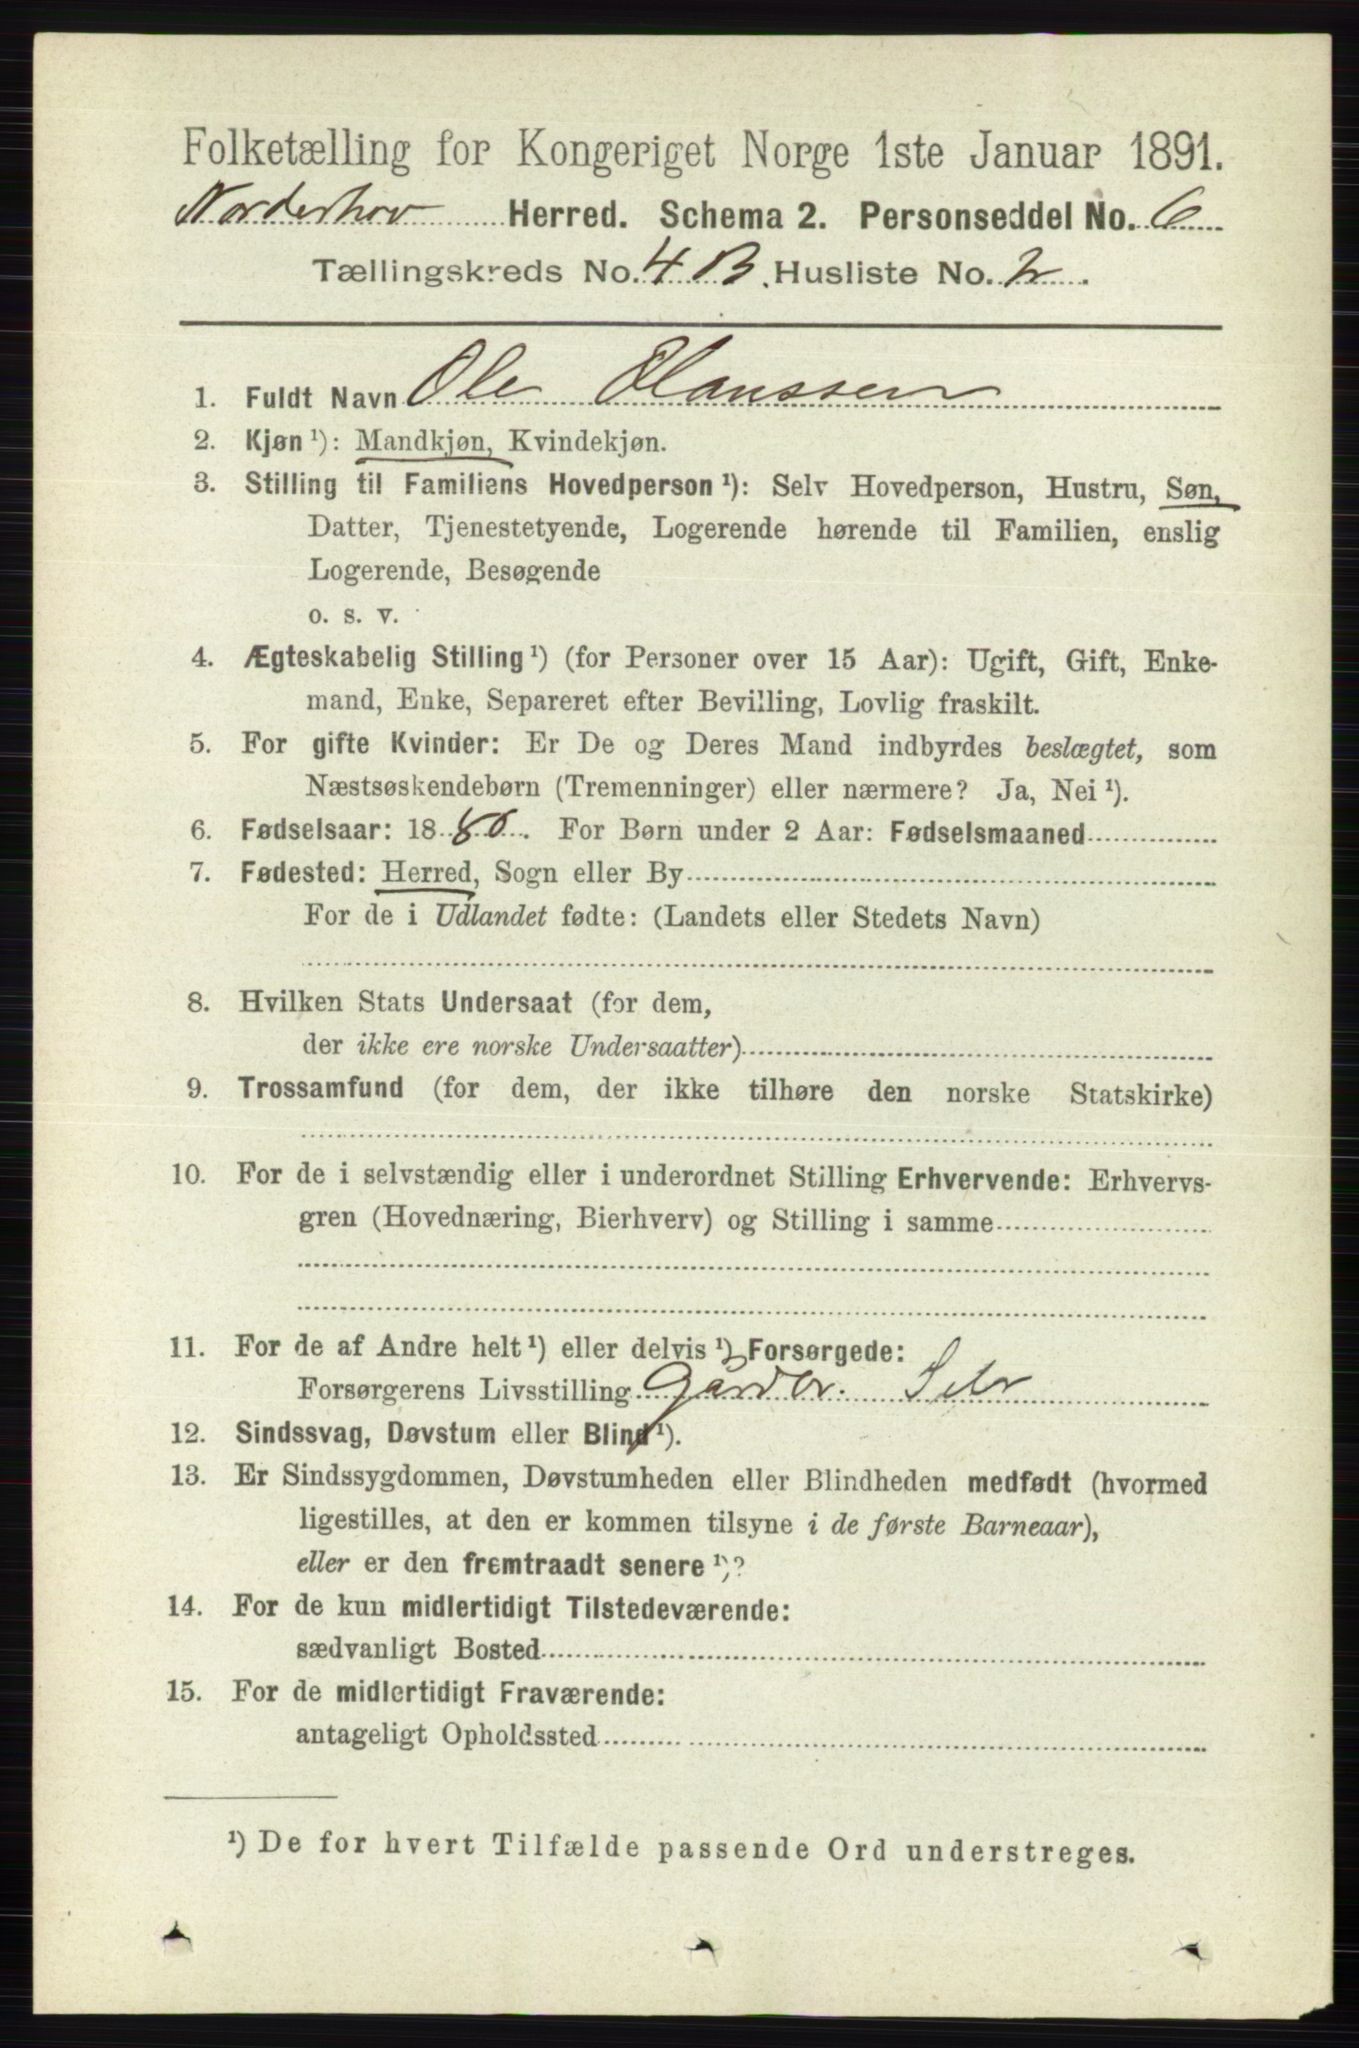 Folketælling for Kongeriget Norge 1ste Januar 1891.
Norderhov Herred. Schema 2. Personseddel No. 6
Tællingskreds No. 4 B. Husliste No. 2.
1. Fuldt Navn Ole Hanssen
2. Kjøn ¹): Mandkjøn, Kvindekjøn.
3. Stilling til Familiens Hovedperson ¹): Selv Hovedperson, Hustru, Søn,
Datter, Tjenestetyende, Logerende hørende til Familien, enslig
Logerende, Besøgende
o. s. v.
4. Ægteskabelig Stilling ¹) (for Personer over 15 Aar): Ugift, Gift, Enke-
mand, Enke, Separeret efter Bevilling, Lovlig fraskilt.
5. For gifte Kvinder: Er De og Deres Mand indbyrdes beslægtet, som
Næstsøskendebørn (Tremenninger) eller nærmere? Ja, Nei ¹).
6. Fødselsaar: 1880. For Børn under 2 Aar: Fødselsmaaned
7. Fødested: Herred, Sogn eller By
For de i Udlandet fødte: (Landets eller Stedets Navn)
8. Hvilken Stats Undersaat (for dem,
der ikke ere norske Undersaatter)
9. Trossamfund (for dem, der ikke tilhøre den norske Statskirke)
10. For de i selvstændig eller i underordnet Stilling Erhvervende: Erhvervs-
gren (Hovednæring, Bierhverv) og Stilling i samme
11. For de af Andre helt ¹) eller delvis ¹) Forsørgede:
Forsørgerens Livsstilling Gårdbr. Selv
12. Sindssvag, Døvstum eller Blind ¹).
13. Er Sindssygdommen, Døvstumheden eller Blindheden medfødt (hvormed
ligestilles, at den er kommen tilsyne i de første Barneaar),
eller er den fremtraadt senere ¹)?
14. For de kun midlertidigt Tilstedeværende:
sædvanligt Bosted
15. For de midlertidigt Fraværende:
antageligt Opholdssted
¹) De for hvert Tilfælde passende Ord understreges.